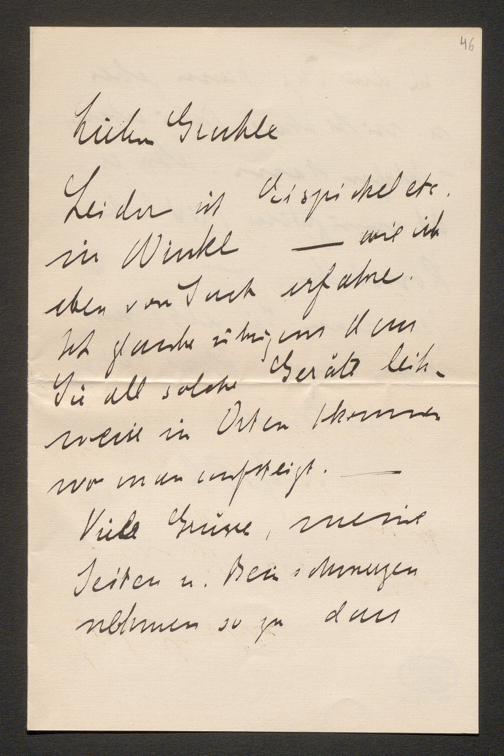 46
Lieber
Leider ist Eispickel etc.
in Winkl — wie ich
eben von erfahre.
Ich glaube übrigens dass
Sie all solche Geräte leih-
weise in Orten bekommen
wo man aufsteigt. —
Viele Grüsse, meine
Seiten u.
nehmen so zu dass